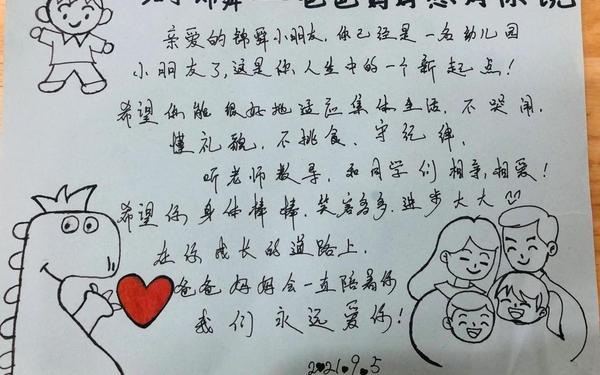 爸爸妈妈想对你说
亲爱的锦舜小朋友,你已经是一名幼儿园
小朋友了,这是你人生中的一个新起点!
希望你能很好地适应集体生活,不哭闹,
懂礼貌,不挑食,守纪律,
听老师教导,和同学们相亲相爱!
希望你身体棒棒,笑容多多,进步大大
在你成长的道路上,
爸爸妈妈会一直陪着你
我们永远爱你!
2021.9.5